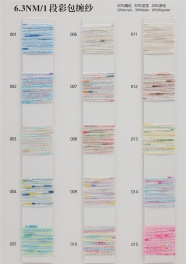 6.3NM/1 段彩包缠纱
001
006
011
002
007
012
003
008
013
004
009
014
005
010
015